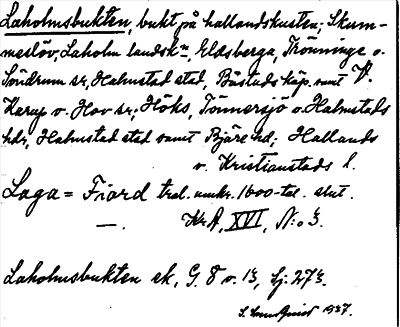 Laholmsbukten, bukt på hallandskusten; Skum-
meslöv, Laholm landskn, Eldsberga, Trönninge o.
Söndrum sr, Halmstad stad, Båstads köp. samt V.
Karup o. Hov sr; Höks, Tönnersjö o. Halmstads
hdr, Halmstad stad samt Bjäre hd; Hallands
o. Kristianstads l.
Laga = Fiord trol. omkr. 1600-tal. slut.
— . KrA, XVI, N:o 3.
Laholmsbukten ek, G. 8 o. 13, Sj. 273.
1937.